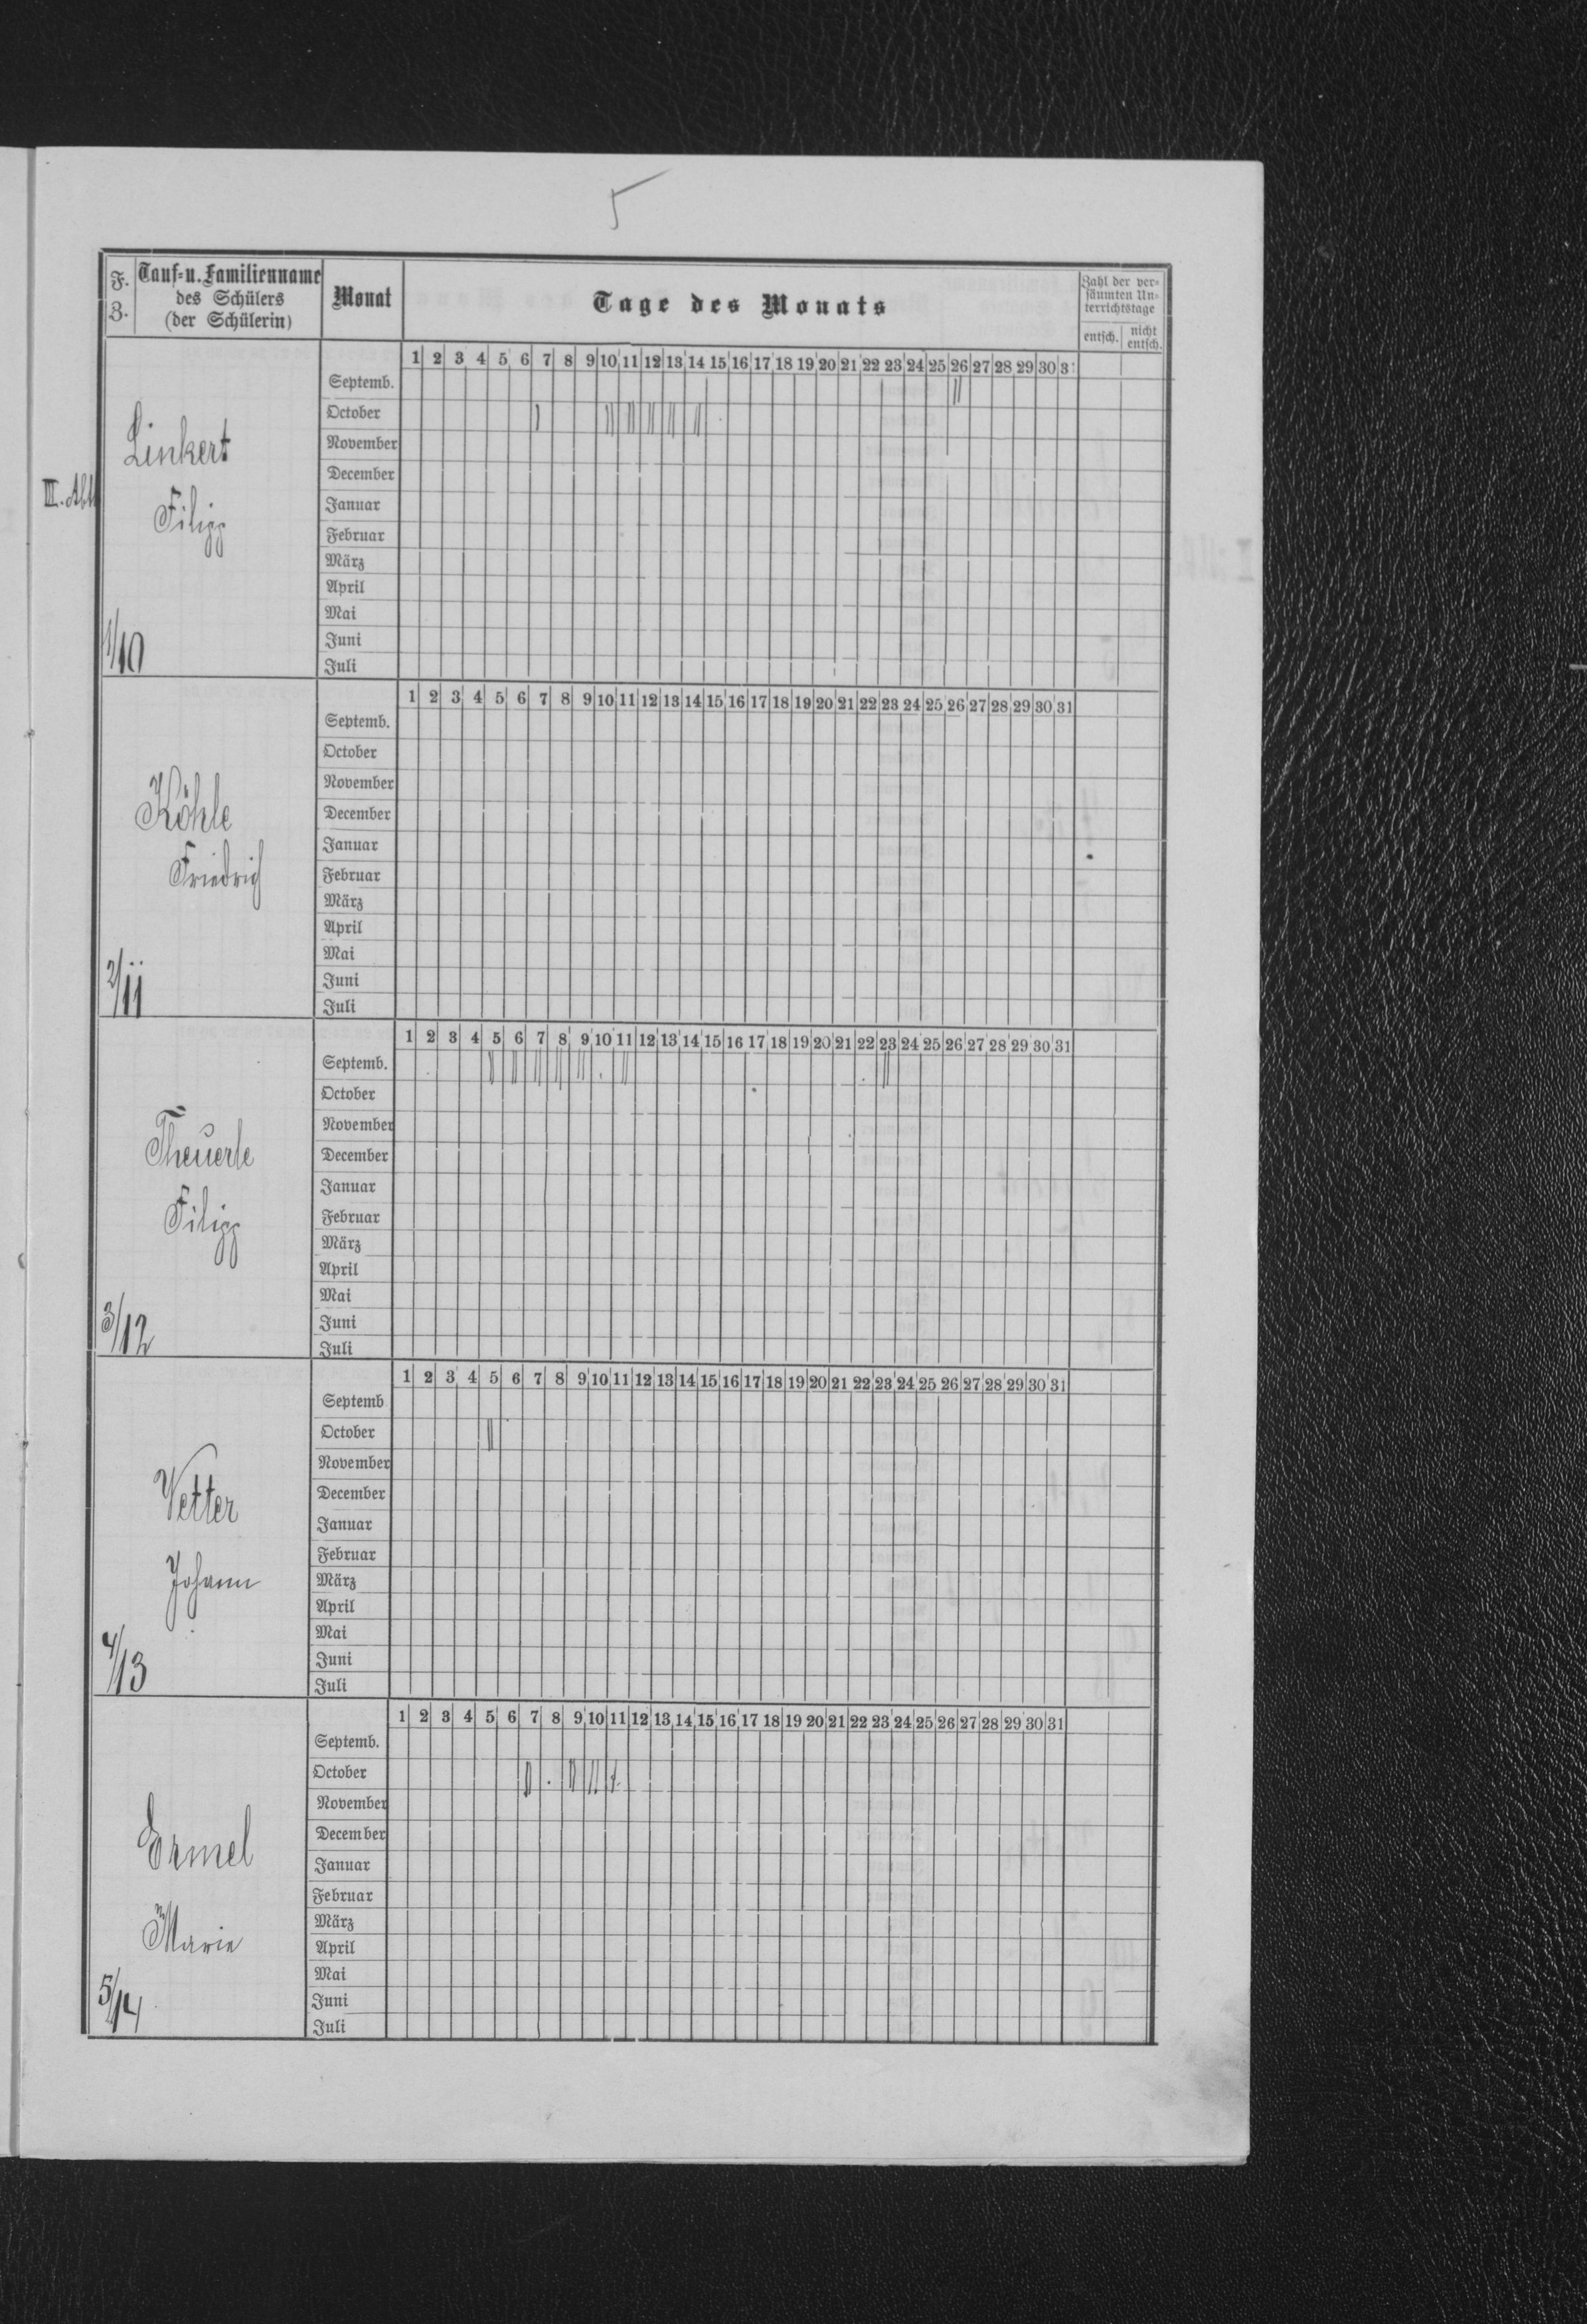 5
F. Z. Tauf= u. Familienname des Schülers (der Schülerin) Monat Tage des Monats Zahl der ver= säumten Un= terrichtstage entsch. nicht entsch.
1 2 3 4 5 6 7 8 9 10 11 12 13 14 15 16 17 18 19 20 21 22 23 24 25 26 27 28 29 30 3
Septemb.
October
Linkert
November
December
III. Abt
Januar
Filipp
Februar
März
April
Mai
Juni
1/10
Juli
1 2 3 4 5 6 7 8 9 10 11 12 13 14 15 16 17 18 19 20 21 22 23 24 25 26 27 28 29 30 31
Septemb.
October
November
Köhle
December
Januar
Friedrich
Februar
März
April
Mai
2/11
Juni
Juli
1 2 3 4 5 6 7 8 9 10 11 12 13 14 15 16 17 18 19 20 21 22 23 24 25 26 27 28 29 30 31
Septemb.
October
November
Theuerle
December
Januar
Filipp
Februar
März
April
Mai
3/12
Juni
Juli
1 2 3 4 5 6 7 8 9 10 11 12 13 14 15 16 17 18 19 20 21 22 23 24 25 26 27 28 29 30 31
Septemb
October
November
Vetter
December
Januar
Februar
Johann
März
April
Mai
4/13
Juni
Juli
1 2 3 4 5 6 7 8 9 10 11 12 13 14 15 16 17 18 19 20 21 22 23 24 25 26 27 28 29 30 31
Septemb.
October
November
Ermel
December
Januar
Februar
März
Marie
April
Mai
5/14
Juni
Juli